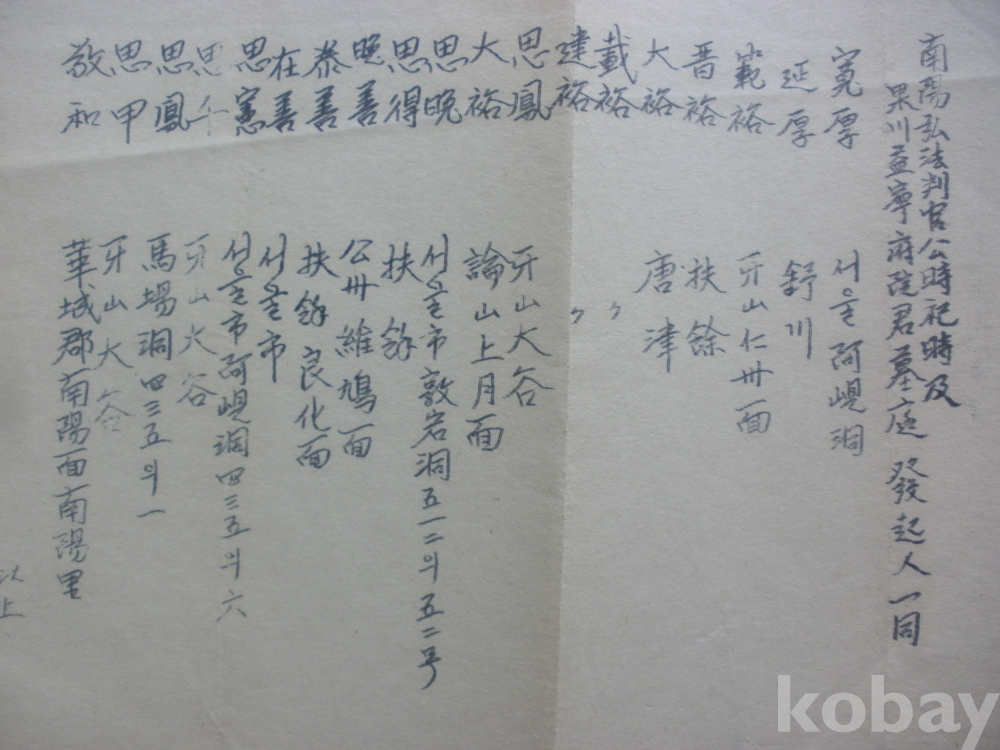 南陽弘法判官公時祀時及
果川益寧府院君墓庭 發起人一同
寬厚 서울阿峴洞
延厚 舒川
範裕 牙山仁州面
晋裕 扶餘
大裕 唐津
載裕 〃
建裕 〃
思鳳 牙山大谷
大裕 論山上月面
思晚 서울市敦岩洞五一二의五二号
思得 扶餘
晚善 公州維鳩面
泰善 扶餘良化面
在善 서울市
思憲 서울市阿峴洞四三五의六
思千 牙山大谷
思鳳 馬場洞四三五의一
思甲 牙山大谷
敬和 華城郡南陽面南陽里
以上
kobay